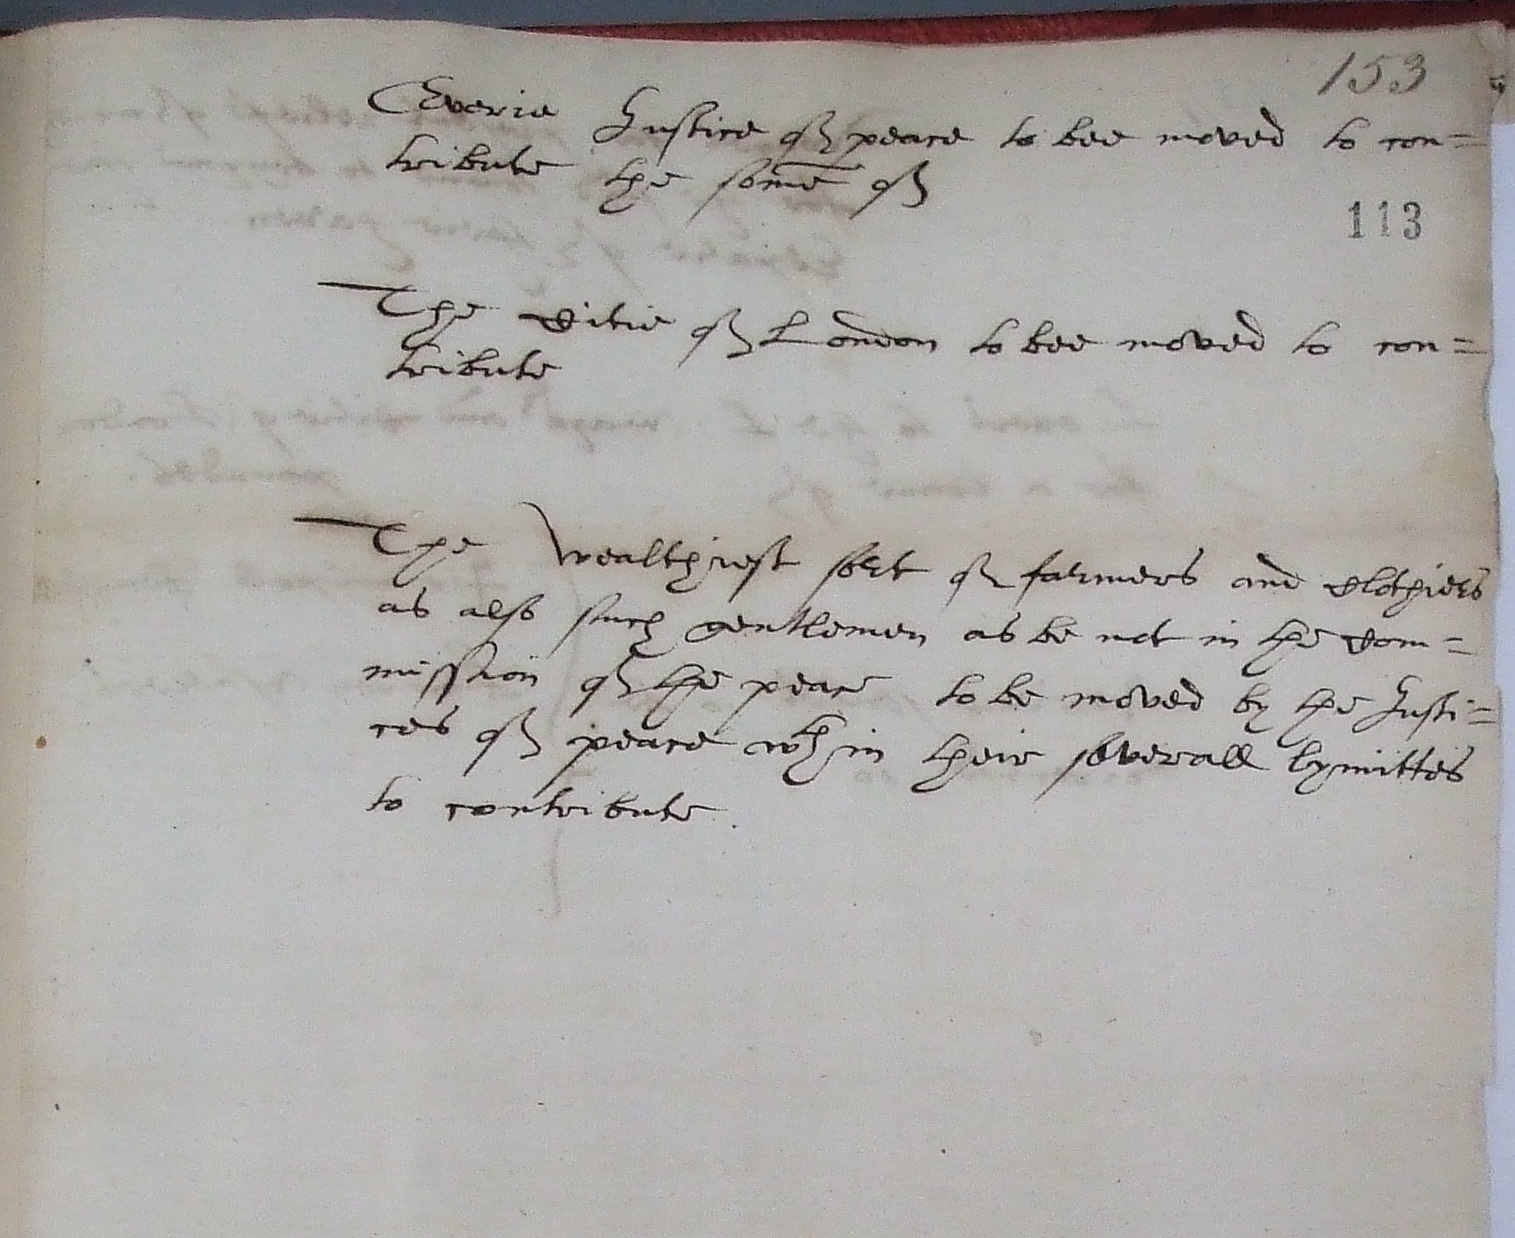 153
Everie Justice of peace to bee moved to con=
tribute the some of
113
The Citie of London to bee moved to con=
tribute
The wealthiest sort of farmers and Clothiers
as also such gentlemen as be not in the Com=
mission of the peace to be moved by the Justi=
ces of peace wthin their severall lymittes
to contribute.